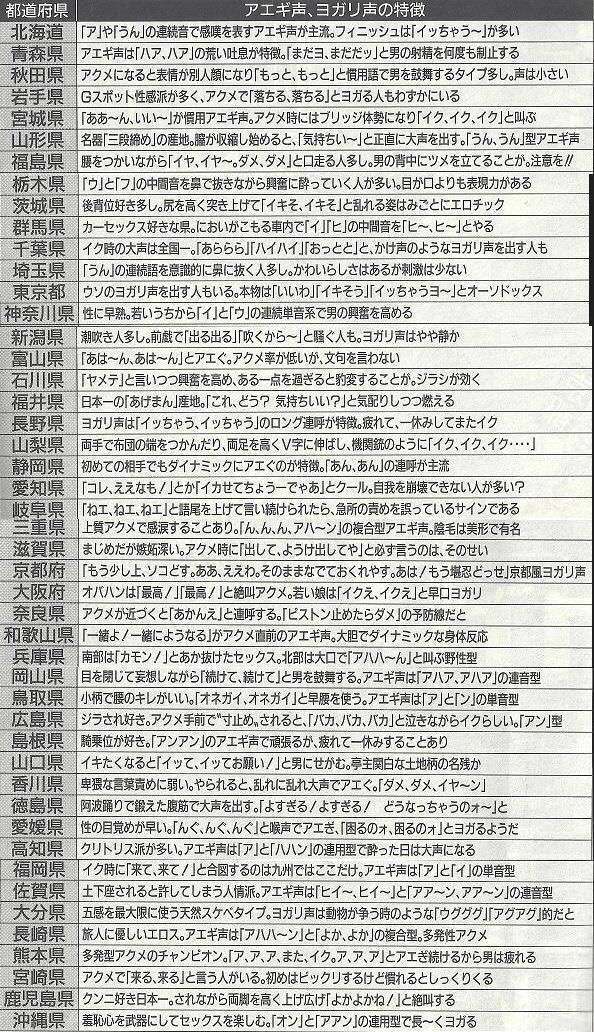 都道府県 アエギ声、ヨガリ声の特徴
北海道 「ア」や「うん」の連続音で感嘆を表すアエギ声が主流。フィニッシュは「イッちゃう〜」が多い
青森県 アエギ声は「ハア、ハア」の荒い吐息が特徴。「まだヨ、まだだッ」と男の射精を何度も制止する
秋田県 アクメになると表情が別人顔になり「もっと、もっと」と慣用語で男を鼓舞するタイプ多し。声は小さい
岩手県 Gスポット性感派が多く、アクメで「落ちる、落ちる」とヨガる人もわずかにいる
宮城県 「ああ〜ん、いい〜」が慣用アエギ声。アクメ時にはブリッジ体勢になり「イク、イク、イク」と叫ぶ
山形県 名器「三段締め」の産地。膣が収縮し始めると、「気持ちい〜」と正直に大声を出す。「うん、うん」型アエギ声
福島県 腰をつかいながら「イヤ、イヤ〜。ダメ、ダメ」と口走る人多し。男の背中にツメを立てることが。注意を!!
栃木県 「ウ」と「フ」の中間音を鼻で抜きながら興奮に酔っていく人が多い。目が口よりも表現力がある
茨城県 後背位好き多し。尻を高く突き上げて「イキそ、イキそ」と乱れる姿はみごとにエロチック
群馬県 カーセックス好きな県。においがこもる車内で「イ」「ヒ」の中間音を「ヒ〜、ヒ〜」とやる
千葉県 イク時の大声は全国一。「あららら」「ハイハイ」「おっとと」と、かけ声のようなヨガリ声を出す人も
埼玉県 「うん」の連続語を意識的に鼻に抜く人多し。かわいらしさはあるが刺激は少ない
東京都 ウソのヨガリ声を出す人もいる。本物は「いいわ」「イキそう」「イッちゃうヨ〜」とオーソドックス
神奈川県 性に早熟。若いうちから「イ」と「ウ」の連続単音系で男の興奮を高める
新潟県 潮吹き人多し。前戯で「出る出る」「吹くから〜」と騒ぐ人も。ヨガリ声はやや静か
富山県 「あは〜ん、あは〜ん」とアエぐ。アクメ率が低いが、文句を言わない
石川県 「ヤメテ」と言いつつ興奮を高め、ある一点を過ぎると豹変することが。ジラシが効く
福井県 日本一の「あげまん」産地。「これ、どう? 気持ちいい?」と気配りしつつ燃える
長野県 ヨガリ声は「イッちゃう、イッちゃう」のロング連呼が特徴。疲れて、一休みしてまたイク
山梨県 両手で布団の端をつかんだり、両足を高くV字に伸ばし、機関銃のように「イク、イク、イク・・・・」
静岡県 初めての相手でもダイナミックにアエぐのが特徴。「あん、あん」の連呼が主流
愛知県 「コレ、ええなも!」とか「イカせてちょうーでゃあ」とクール。自我を崩壊できない人が多い?
岐阜県 「ねエ、ねエ、ねエ」と語尾を上げて言い続けられたら、急所の責めを誤っているサインである
三重県 上質アクメで感涙することあり。「ん、ん、ん、アハ〜ン」の複合型アエギ声。陰毛は美形で有名
滋賀県 まじめだが嫉妬深い。アクメ時に「出して、ようけ出してや」と必す言うのは、そのせい
京都府 「もう少し上、ソコどす。ああ、ええわ。そのままなでておくれやす。あは!もう堪忍どっせ」京都風ヨガリ声
大阪府 オバハンは「最高!」「最高!」と絶叫アクメ。若い娘は「イクえ、イクえ」と早口ヨガリ
奈良県 アクメが近づくと「あかんえ」と連呼する。「ピストン止めたらダメ」の予防線だと
和歌山県 「一緒よ!一緒にようなる」がアクメ直前のアエギ声。大胆でダイナミックな身体反応
兵庫県 南部は「カモン!」とあか抜けたセックス。北部は大口で「アハハ〜ん」と叫ぶ野性型
岡山県 目を閉じて妄想しながら「続けて、続けて」と男を鼓舞する。アエギ声は「アハア、アハア」の連音型
鳥取県 小柄で腰のキレがいい。「オネガイ、オネガイ」と早腰を使う。アエギ声は「ア」と「ン」の単音型
広島県 ジラされ好き。アクメ手前で“寸止め”されると、「バカ、バカ、バカ」と泣きながらイクらしい。「アン」型
島根県 騎乗位が好き。「アンアン」のアエギ声で頑張るが、疲れて一休みすることあり
山口県 イキたくなると「イッて、イッてお願い!」と男にせがむ。亭主関白な土地柄の名残か
香川県 卑猥な言葉責めに弱い。やられると、乱れに乱れ大声でアエぐ。「ダメ、ダメ、イヤ〜ン」
徳島県 阿波踊りで鍛えた腹筋で大声を出す。「よすぎる!よすぎる! どうなっちゃうのォ〜」と
愛媛県 性の目覚めが早い。「んぐ、んぐ、んぐ」と喉声でアエぎ、「困るのォ、困るのォ」とヨガるようだ
高知県 クリトリス派が多い。アエギ声は「ア」と「ハハン」の連用型で酔った日は大声になる
福岡県 イク時に「来て、来て!」と合図するのは九州ではここだけ。アエギ声は「ア」と「イ」の単音型
佐賀県 土下座されると許してしまう人情派。アエギ声は「ヒイ〜、ヒイ〜」と「アア〜ン、アア〜ン」の連音型
大分県 五感を最大限に使う天然スケベタイプ。ヨガリ声は動物が争う時のような「ウグググ」「アグアグ」的だと
長崎県 旅人に優しいエロス。アエギ声は「アハハ〜ン」と「よか、よか」の複合型。多発性アクメ
熊本県 多発型アクメのチャンピオン。「ア、ア、ア、また、イク。ア、ア、ア」とアエぎ続けるから男は疲れる
宮崎県 アクメで「来る、来る」と言う人がいる。初めはビックリするけど慣れるとしっくりくる
鹿児島県 クンニ好き日本一。されながら両脚を高く上げ広げ「よかよかね!」と絶叫する
沖縄県 羞恥心を武器にしてセックスを楽しむ。「オン」と「アアン」の連用型で長〜くヨガる